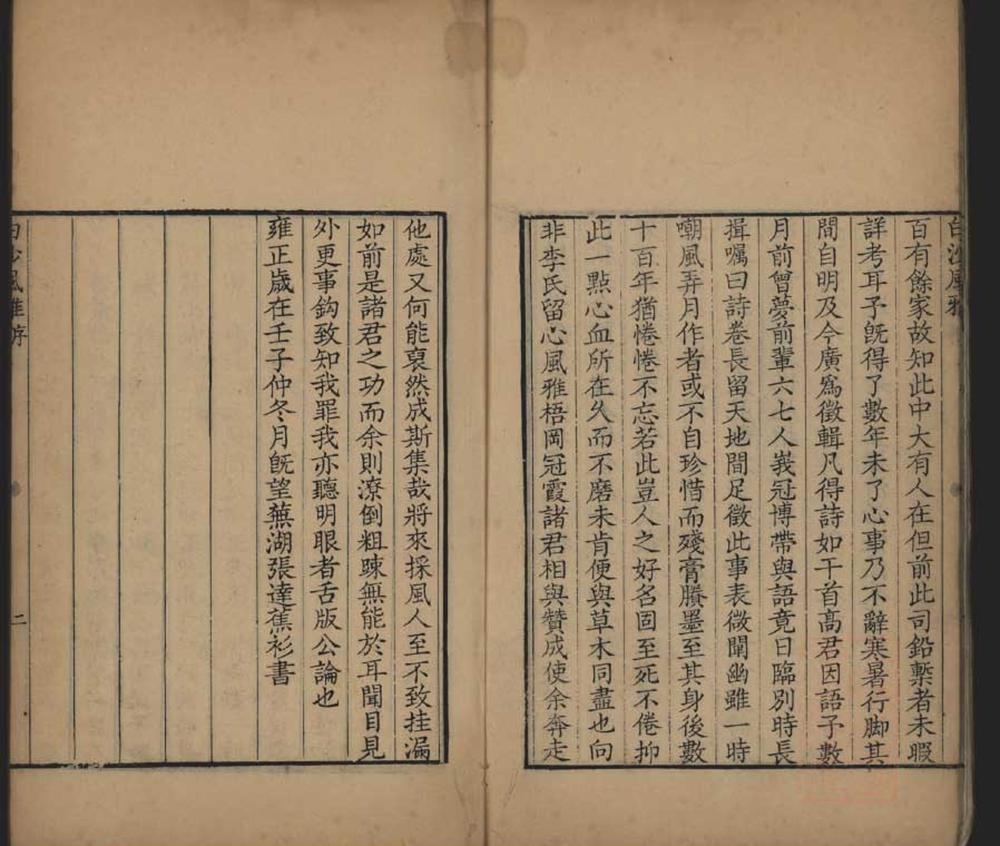 白沙風雅
百有餘家故知此中大有人在但前此司鉛槧者未暇
詳考耳予旣得了數年未了心事乃不辭寒暑行脚其
間自明及今廣爲徵輯凡得詩如干首高君因語予數
月前曾夢前輩六七人峩冠博帶與語竟日臨別時長
揖囑曰詩卷長留天地間足徵此事表微闡幽雖一時
嘲風弄月作者或不自珍惜而殘膏賸墨至其身後數
十百年猶惓惓不忘若此豈人之好名固至死不倦抑
此一點心血所在久而不磨未肯便與草木同盡也向
非李氏留心風雅梧岡冠霞諸君相與贊成使余奔走
他處又何能裒然成斯集哉將來採風人至不致挂漏
如前是諸君之功而余則潦倒粗踈無能於耳聞目見
外更事鈎致知我罪我亦聽明眼者舌版公論也
雍正歲在壬子仲冬月旣望蕪湖張達蕉衫書
白沙風雅序
二